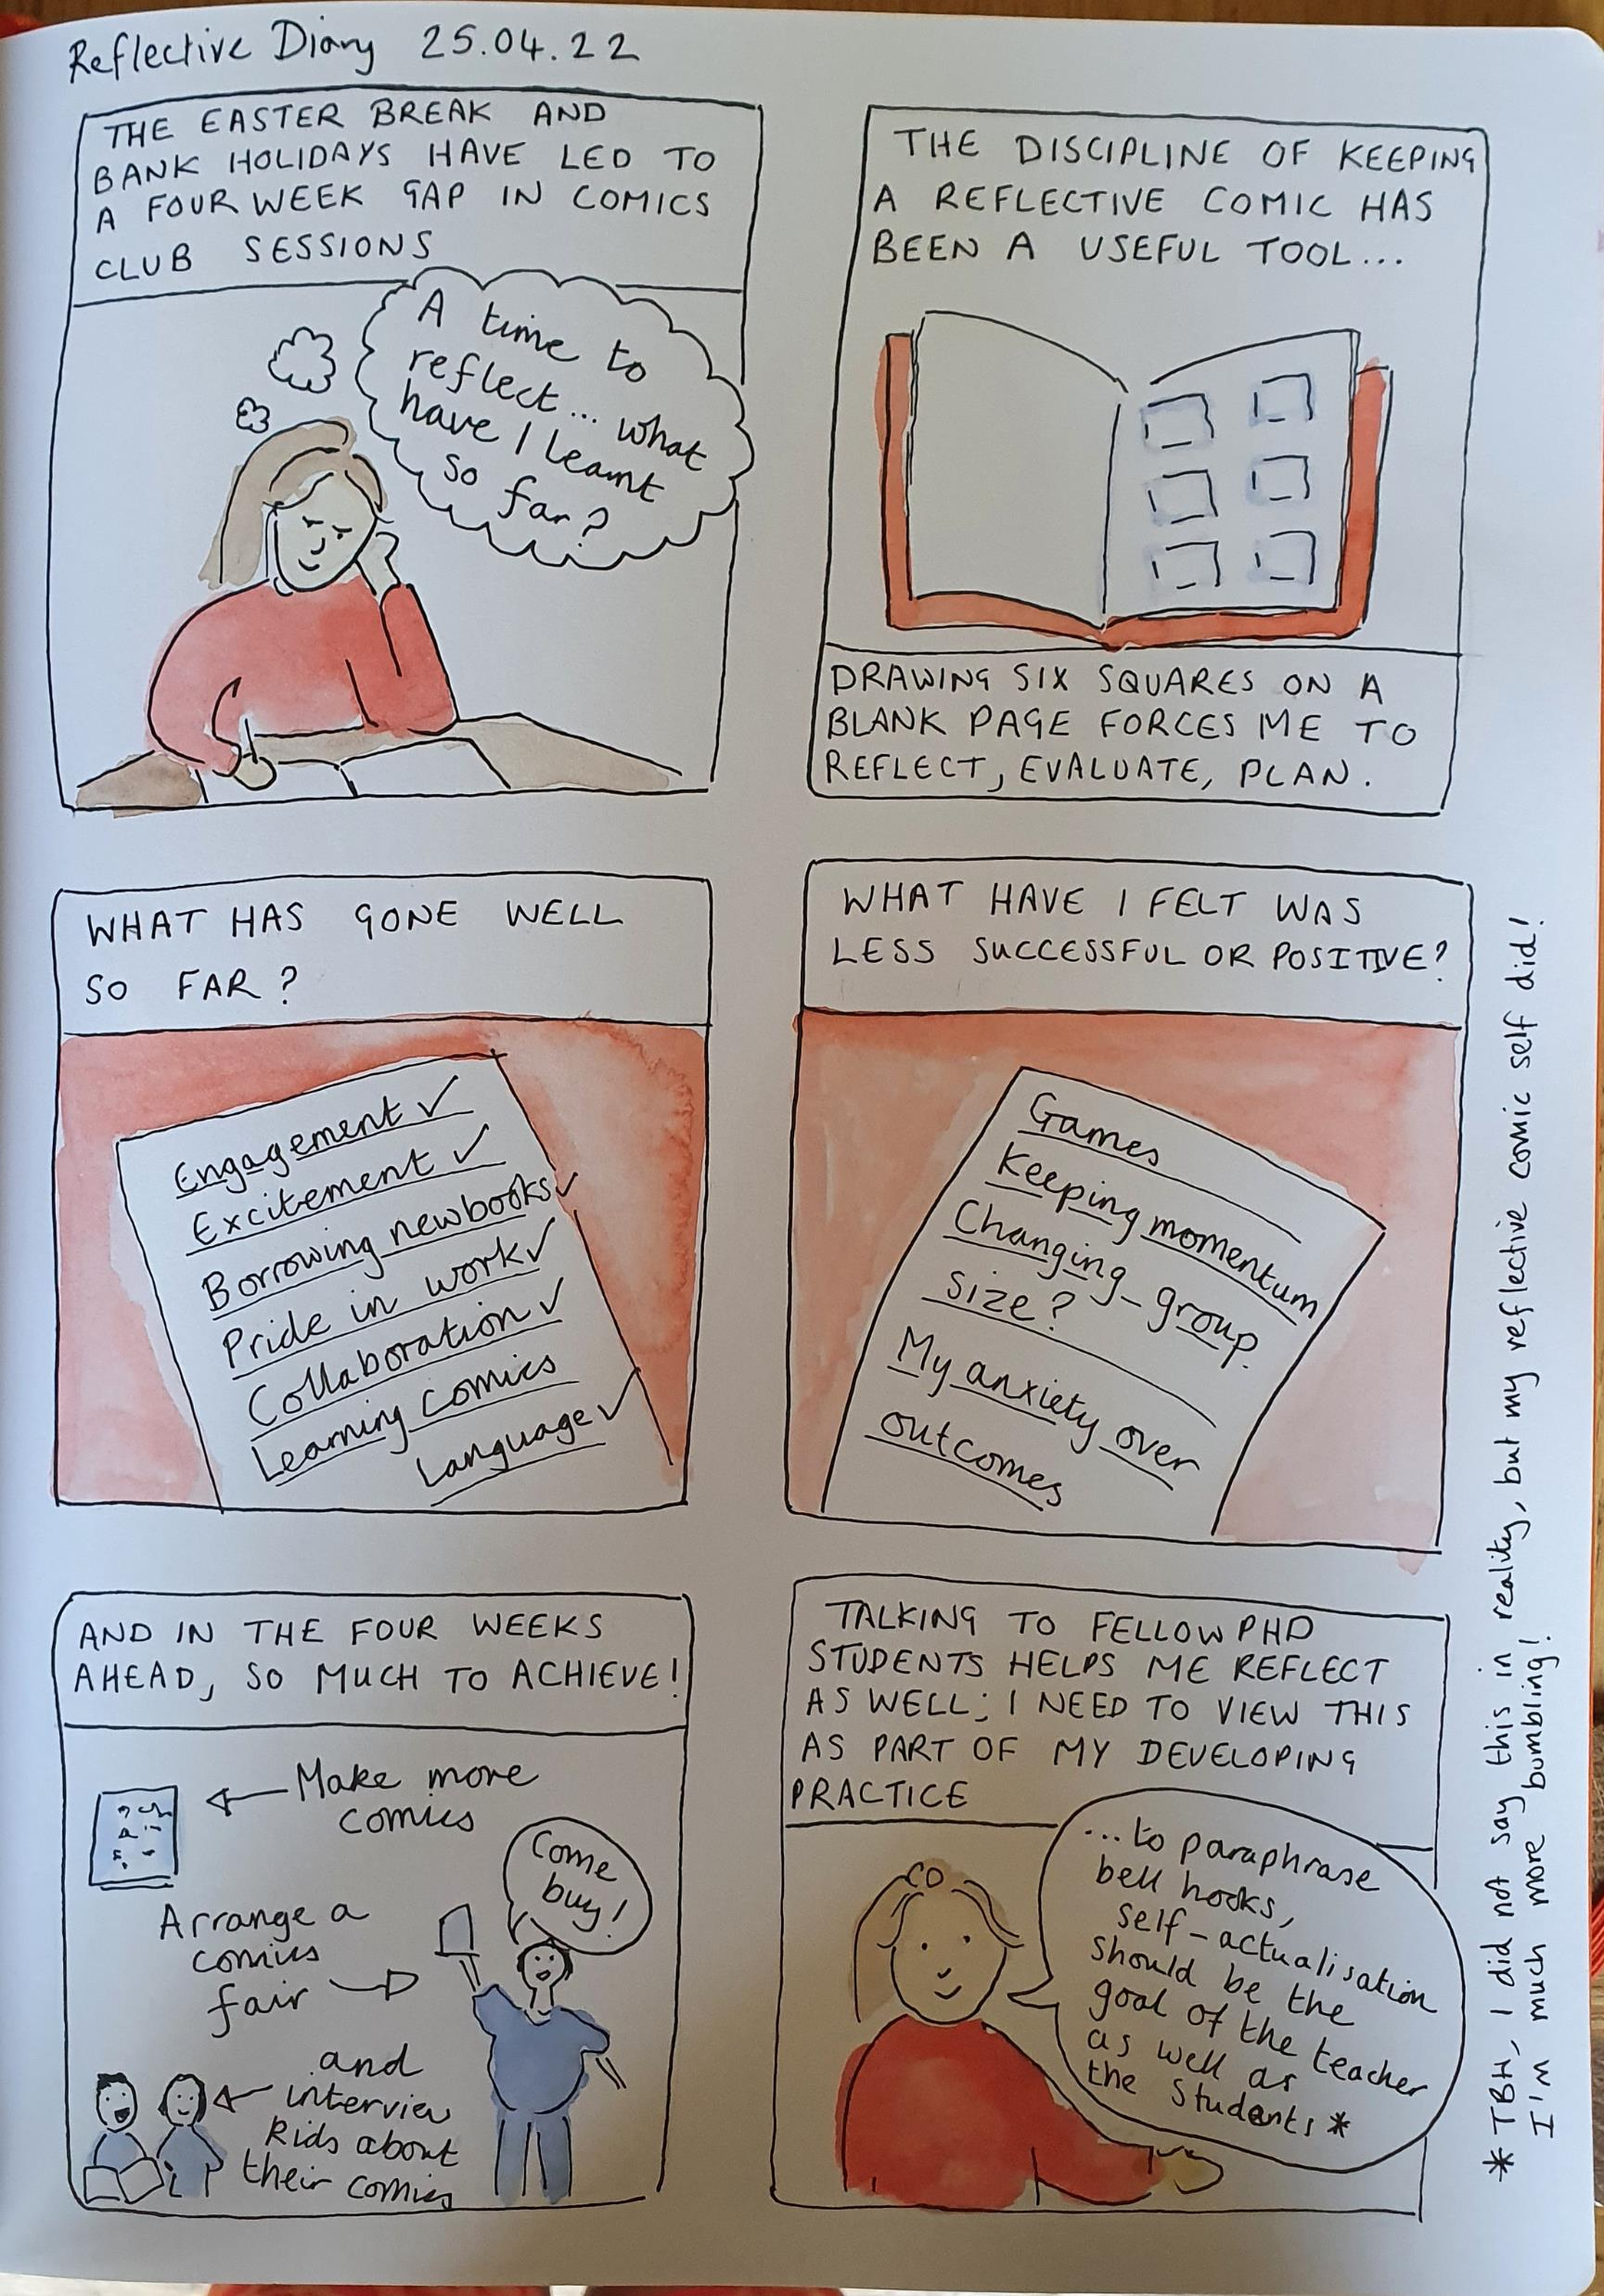 Reflective Diary 25.04.22
THE EASTER BREAK AND
BANK HOLIDAYS HAVE LED TO
A FOUR WEEK GAP IN COMICS
CLUB SESSIONS
A time to
reflect... what
have I learnt
so far?
THE DISCIPLINE OF KEEPING
A REFLECTIVE COMIC HAS
BEEN A USEFUL TOOL...
DRAWING SIX SQUARES ON A
BLANK PAGE FORCES ME TO
REFLECT, EVALUATE, PLAN.
WHAT HAS GONE WELL
SO FAR?
Engagement ✓
Excitement ✓
Borrowing new books ✓
Pride in work ✓
Collaboration ✓
Learning comics
Language ✓
WHAT HAVE I FELT WAS
LESS SUCCESSFUL OR POSITIVE?
Games
Keeping momentum
Changing-group
size?
My anxiety over
outcomes
AND IN THE FOUR WEEKS
AHEAD, SO MUCH TO ACHIEVE!
Make more
comics
Come
buy!
Arrange a
comics
fair
and
interview
kids about
their comics
TALKING TO FELLOW PHD
STUDENTS HELPS ME REFLECT
AS WELL; I NEED TO VIEW THIS
AS PART OF MY DEVELOPING
PRACTICE
...to paraphrase
bell hooks,
self-actualisation
should be the
goal of the teacher
as well as
the students *
* TBH, I did not say this in reality, but my reflective comic self did!
I'm much more bumbling!